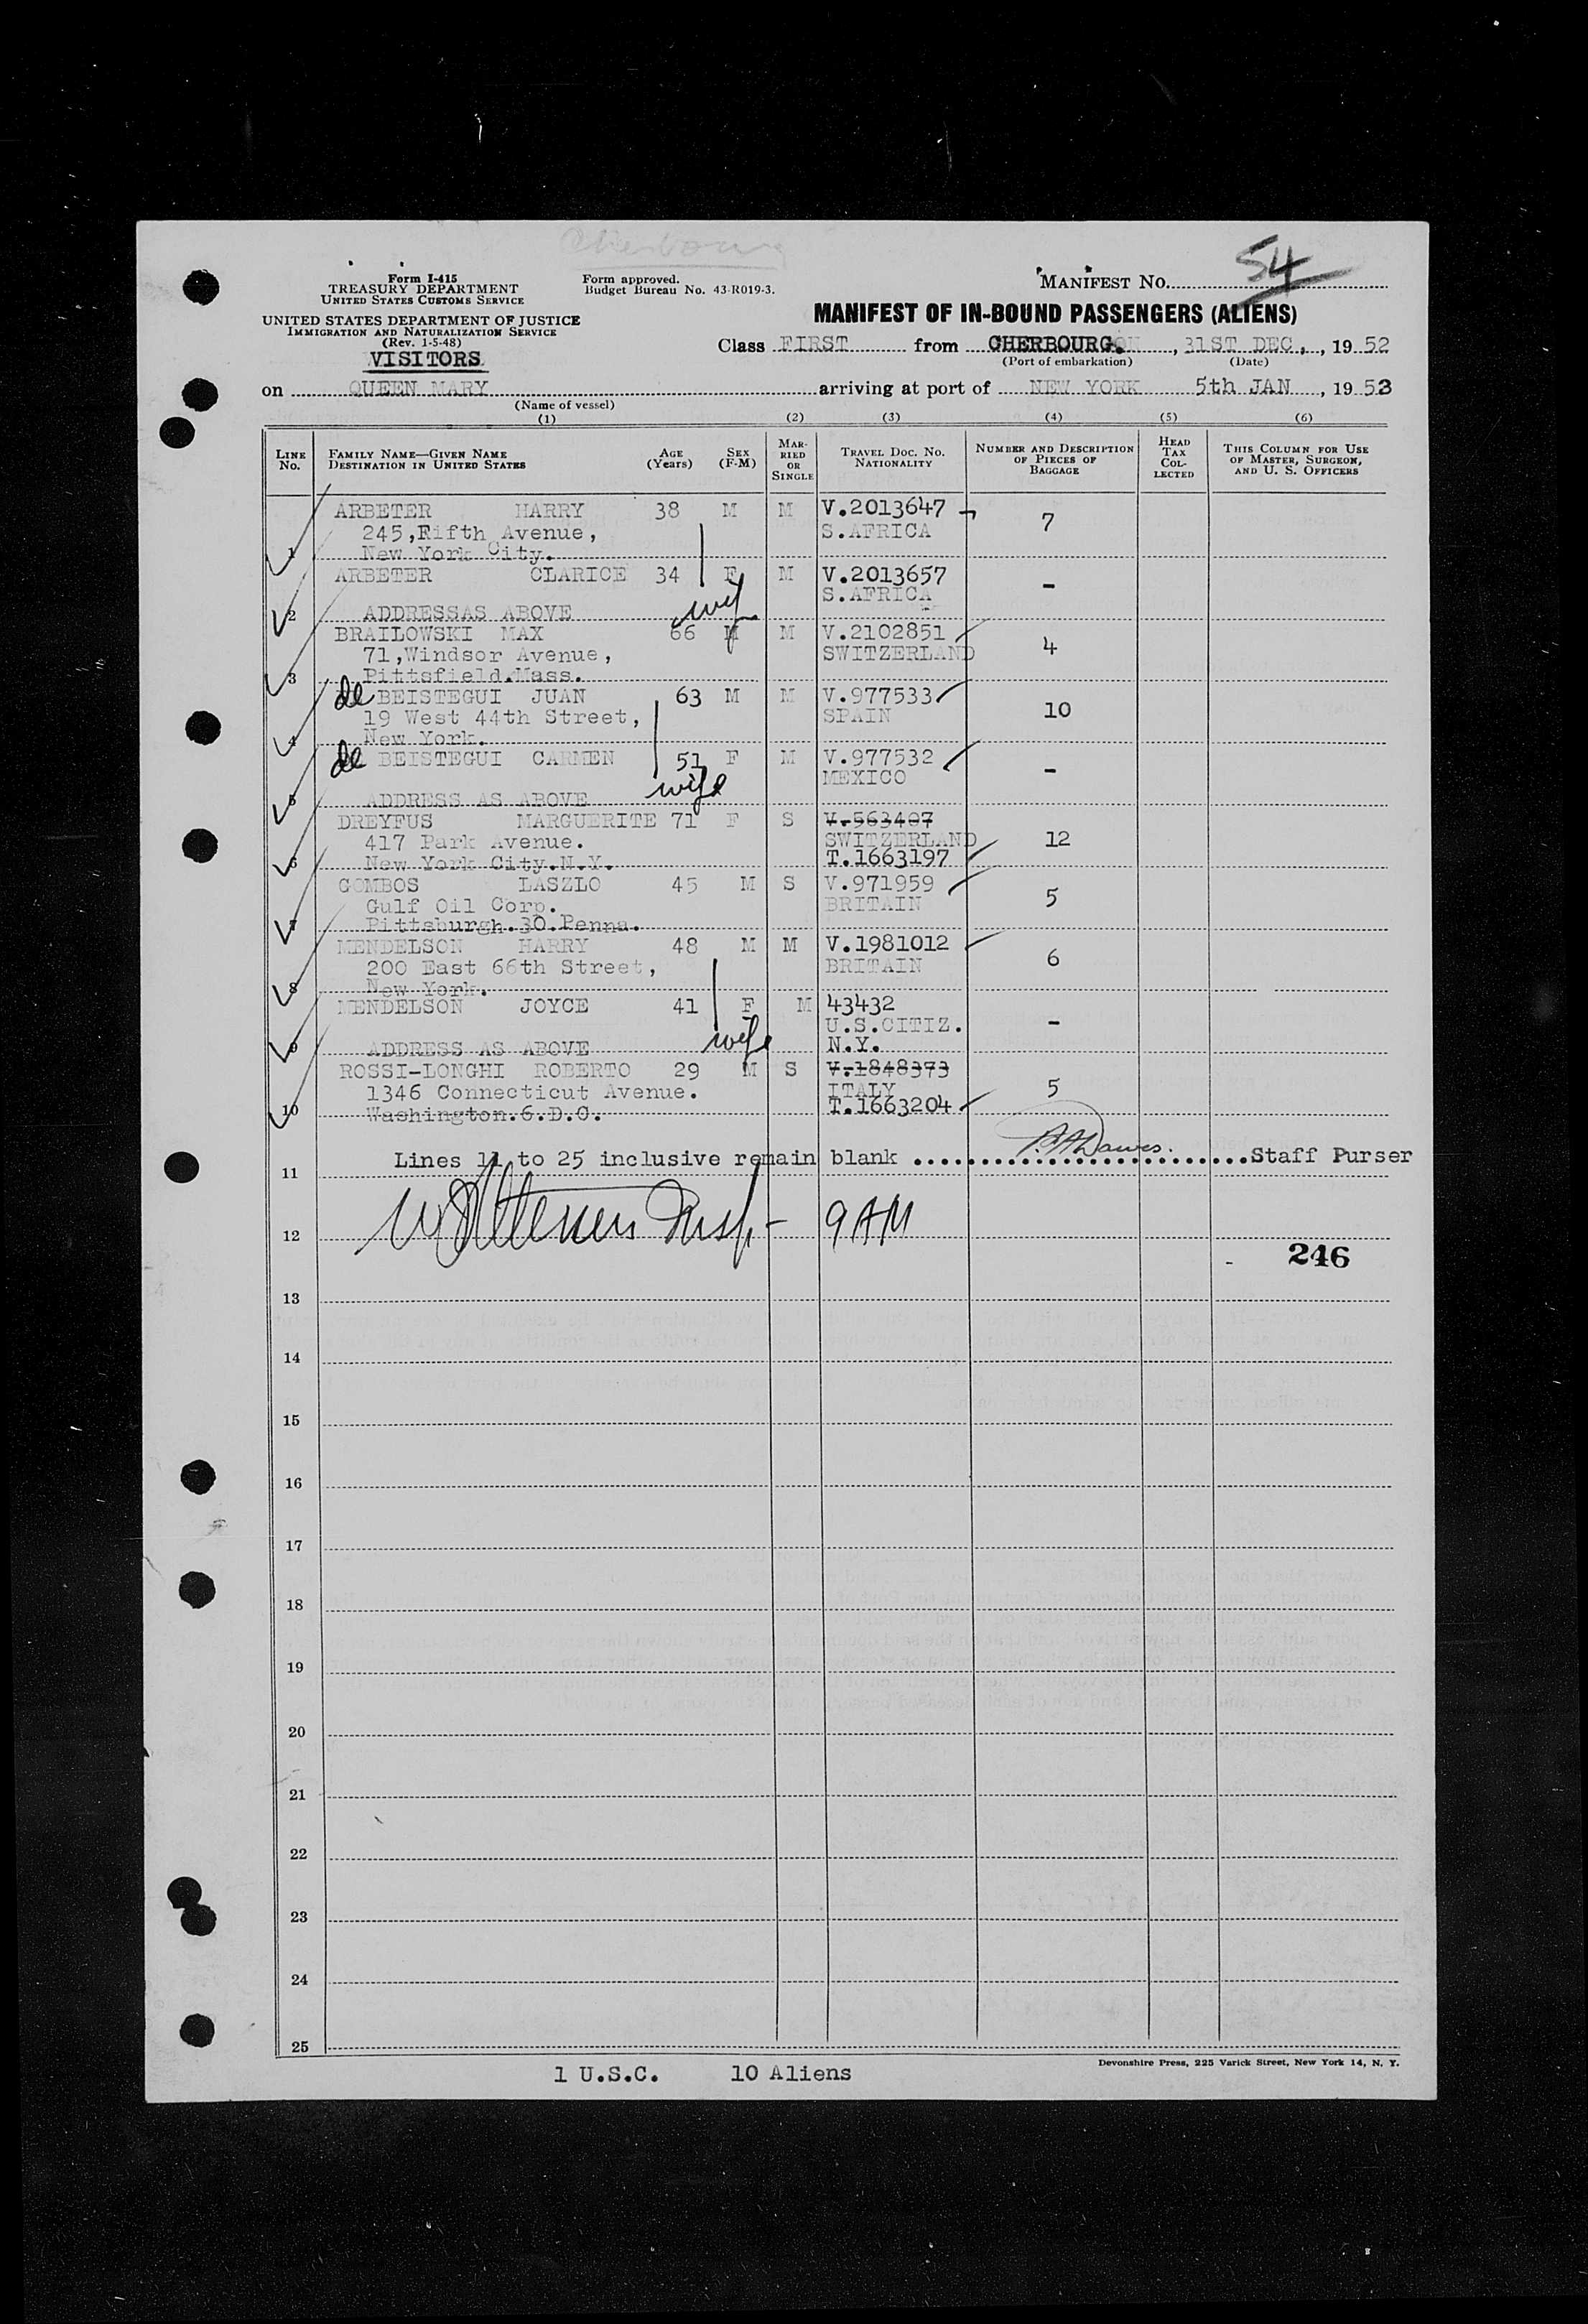 Cherbourg
54
Form I-415
TREASURY DEPARTMENT
UNITED STATES CUSTOMS SERVICE
Form approved.
Budget Bureau No. 43-R019-3.
MANIFEST NO.
UNITED STATES DEPARTMENT OF JUSTICE
IMMIGRATION AND NATURALIZATION SERVICE
(Rev. 1-5-48)
VISITORS
MANIFEST OF IN-BOUND PASSENGERS (ALIENS)
Class FIRST from CHERBOURG. , 31ST DEC, , 19 52
(Port of embarkation) (Date)
on QUEEN MARY arriving at port of NEW YORK 5th JAN , 19 53
(Name of vessel)
(1) (2) (3) (4) (5) (6)
LINE No. FAMILY NAME—GIVEN NAME DESTINATION IN UNITED STATES AGE (Years) SEX (F-M) MARRIED OR SINGLE TRAVEL DOC. NO. NATIONALITY NUMBER AND DESCRIPTION OF PIECES OF BAGGAGE HEAD TAX COLLECTED THIS COLUMN FOR USE OF MASTER, SURGEON, AND U. S. OFFICERS
ARBETER HARRY 38 M M V.2013647 7
245,Fifth Avenue, S.AFRICA
1 New York City.
ARBETER CLARICE 34 F M V.2013657 -
S.AFRICA
2 ADDRESSAS ABOVE wife
BRAILOWSKI MAX 66 M M V.2102851 4
71,Windsor Avenue, SWITZERLAND
3 Pittsfield.Mass.
de BEISTEGUI JUAN 63 M M V.977533 10
19 West 44th Street, SPAIN
4 New York.
de BEISTEGUI CARMEN 51 F M V.977532 -
MEXICO
5 ADDRESS AS ABOVE wife
DREYFUS MARGUERITE 71 F S V.563407 12
417 Park Avenue. SWITZERLAND
6 New York City.N.Y. T.1663197
GOMBOS LASZLO 45 M S V.971959 5
Gulf Oil Corp. BRITAIN
7 Pittsburgh.30.Penna.
MENDELSON HARRY 48 M M V.1981012 6
200 East 66th Street, BRITAIN
8 New York.
MENDELSON JOYCE 41 F M 43432 -
U.S.CITIZ.
9 ADDRESS AS ABOVE wife N.Y.
ROSSI-LONGHI ROBERTO 29 M S V.1848373 5
1346 Connecticut Avenue. ITALY
10 Washington.6.D.C. T.1663204
Lines 11 to 25 inclusive remain blank ..........................Staff Purser
11
12 Insp - 9 AM
246
13
14
15
16
17
18
19
20
21
22
23
24
25
Devonshire Press, 225 Varick Street, New York 14, N. Y.
1 U.S.C. 10 Aliens